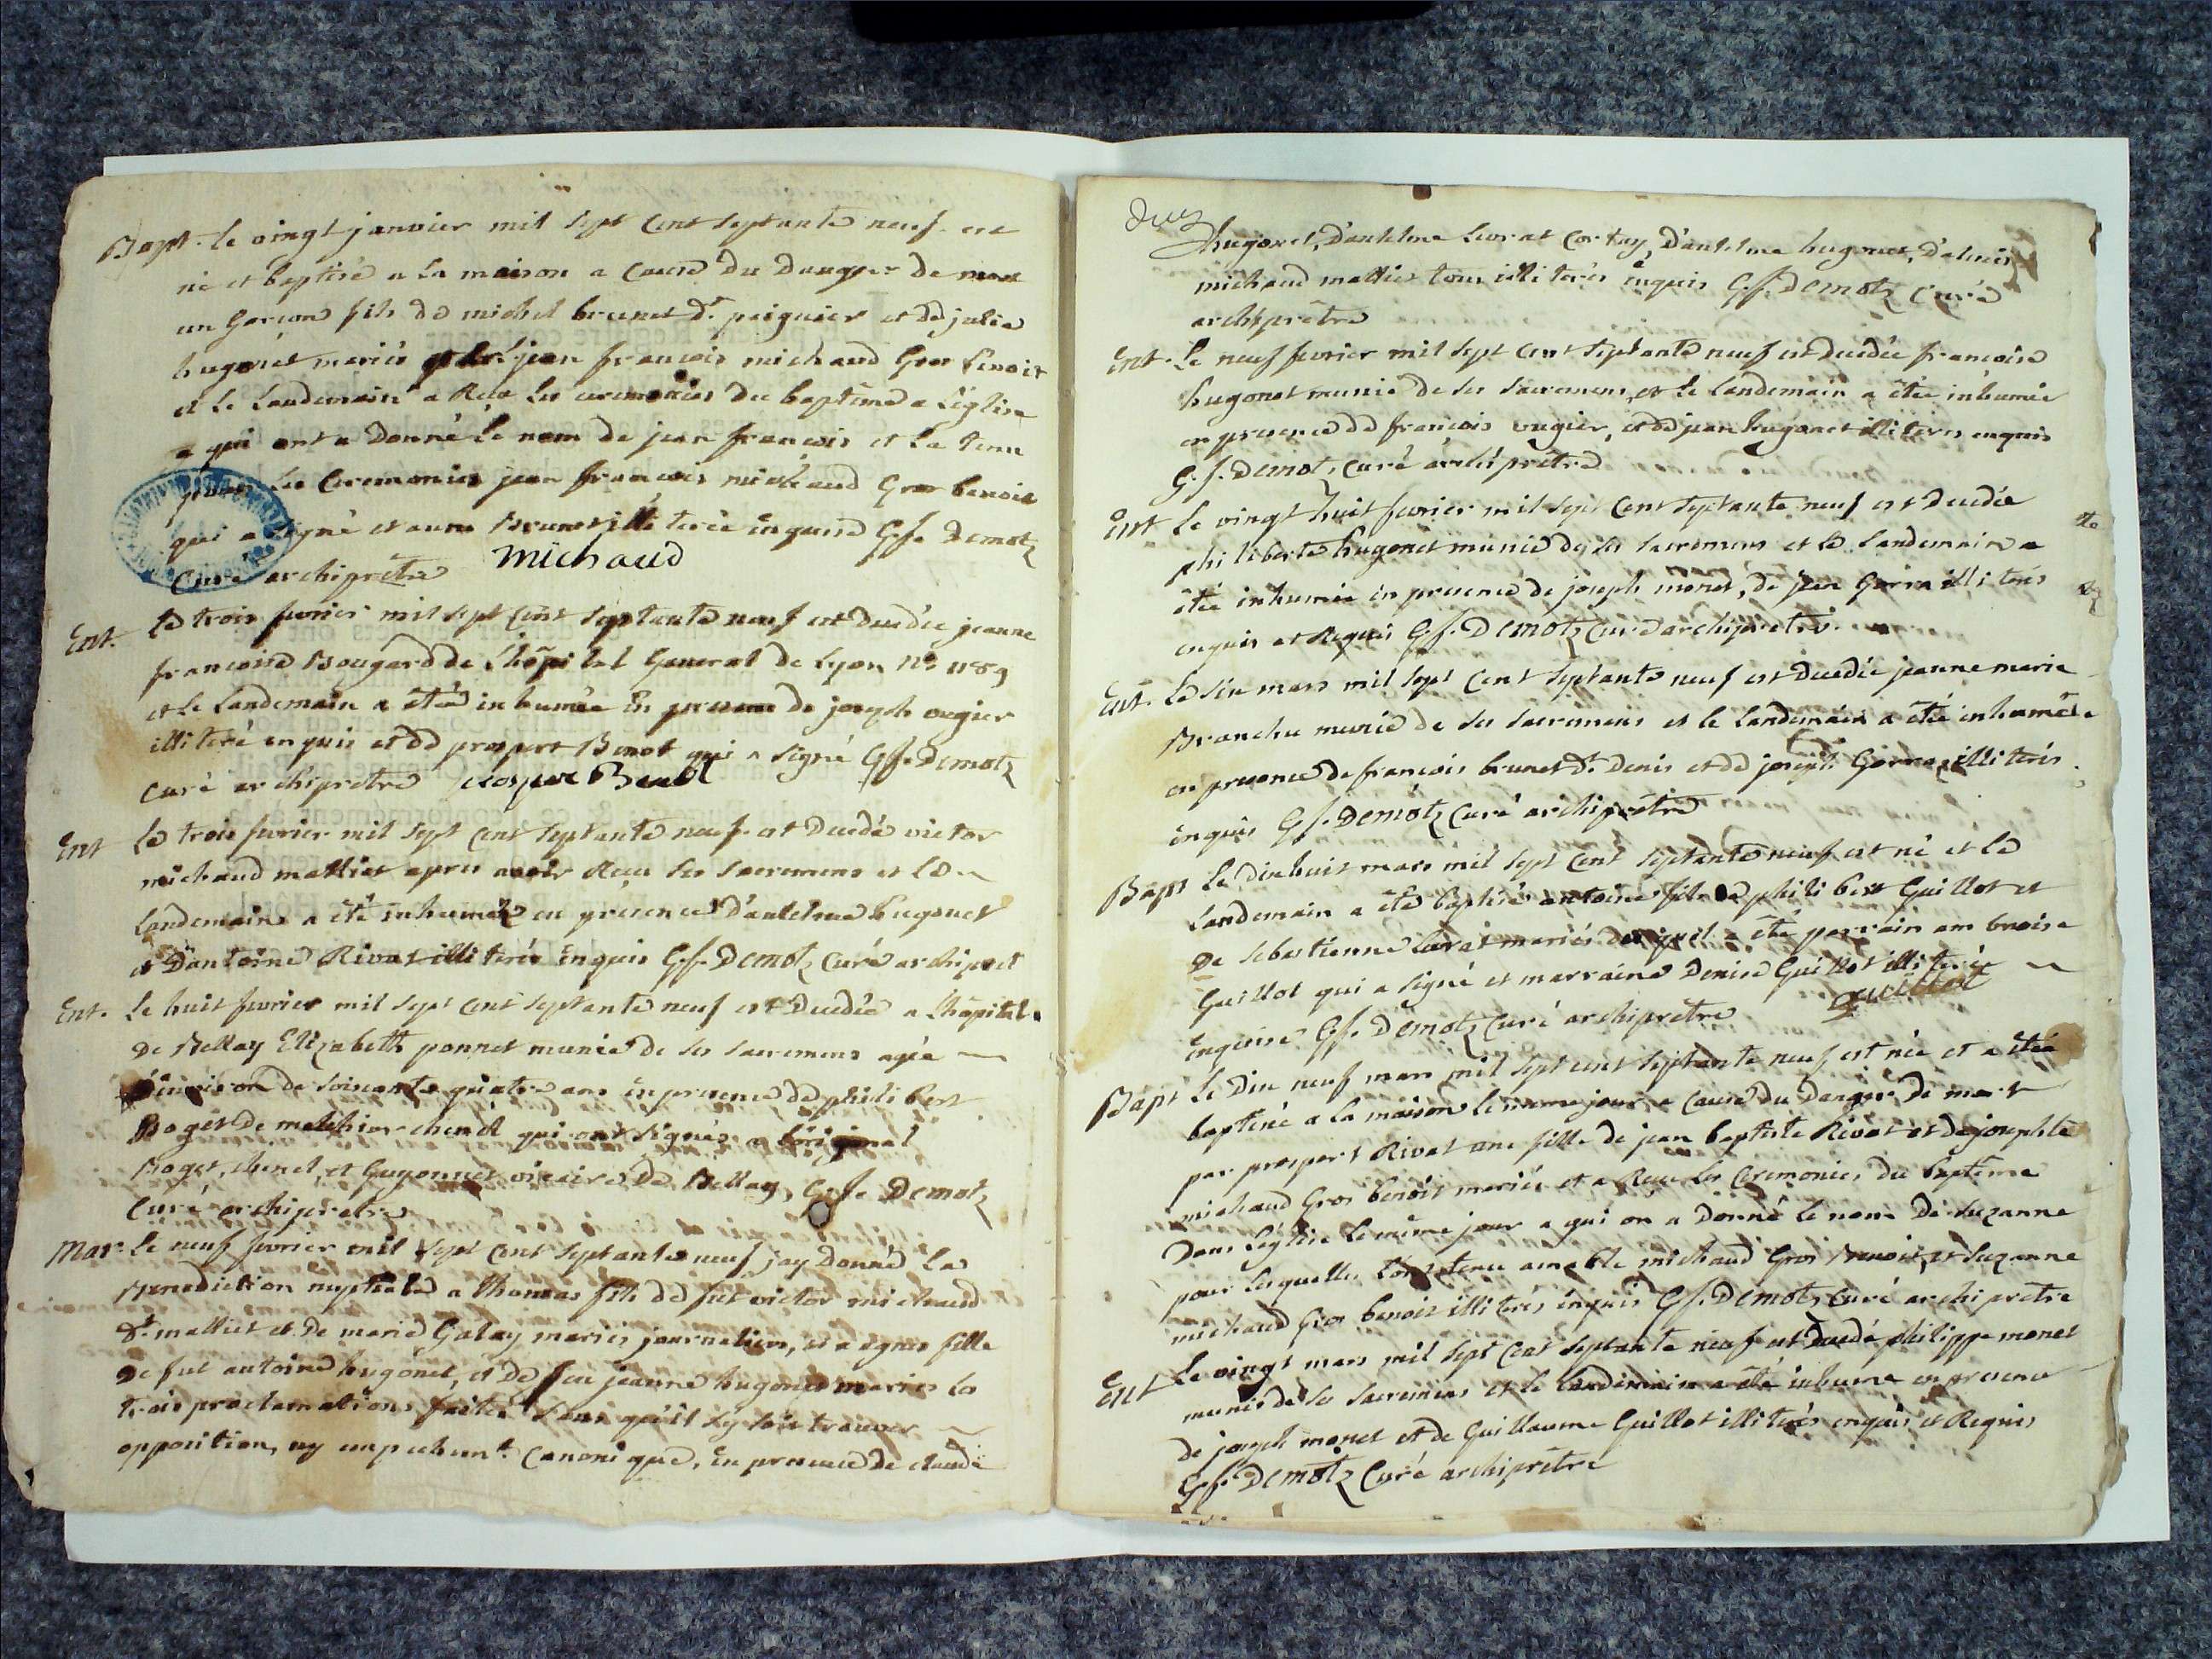 Bapt. le vingt janvier mil sept cent septante neuf est
né et baptisé a la maison a cause du danger de mort
un garcon fils de michel brunet dt. peignier et de julie
hugonet mariés par jean francois michaud Gros benoit
et le landemain a Recu les ceremonies du baptême a l'église
a qui on a donné le nom de jean francois et l'a tenu
pour les Ceremonies jean francois michaud Gros benoit
qui a signé et anne Brunet illiterée enquise G.f. Demotz
Curé archiprêtre michaud
Ent. le trois fevrier mil sept cent septante neuf est decedée jeanne
francoise Bougard de L'hôpital General de Lyon No 1189
et le landemain a étée inhumée en presence de joseph ougier
illiteré enquis et de prospert Benot qui a signé G.f. Demotz
curé archiprêtre prosper Benot
Ent le trois fevrier mil sept cent septante neuf est decedé victor
michaud malliet apres avoir Recu ses sacremens et le
landemain a été inhumé en presence d'antelme hugonet
et D'antoine Rivat illiterés enquis G.f. Demotz Curé archipret
Ent. le huit fevrier mil sept cent septante neuf est decedée a L'hôpital
De Bellay Elizabeth ponnet munie de ses sacremens agée
environ de soixante quatre ans en presence de philibert
Boget de melchior chenel qui ont signés a l'original
Boget, chenel, et Guyonnet vicaire De Bellay, G.f. Demotz
Curé archiprêtre
Mar. le neuf fevrier mil sept cent septante neuf jay Donné La
Benediction nuptiale a thomas fils de fut victor michaud
dt. malliet et De marie Galay mariés journaliers, et a agnes fille
De fut antoine hugonet, et De feu jeanne hugonet mariés les
trois proclamations faites sans qu'il sy soit trouver
opposition, ny empechemt. Canonique, en presence de claude
deux
hugonet, D'antelme Livrat Cortay, D'antelme hugonet, D'alexis
michaud malliet tous illiterés enquis G.f. Demotz Curé
archiprêtre
Ent. Le neuf fevrier mil sept cent septante neuf est decedée francoise
hugonet munie de ses sacremens, et le landemain a étée inhumée
en presence de francois ougier, et de jean hugonet illiterés enquis
G.f. Demotz curé archiprêtre
Ent Le vingt huit fevrier mil sept cent septante neuf est decedée
philiberte hugonet munie de ses sacremens et le landemain a
étée inhumée en presence de joseph monet, de jean Gorin illiterés
enquis et Requis G.f. Demotz Curé archiprêtre
Ent. Le six mars mil sept cent septante neuf est decedée jeanne marie
Branche munie de ses sacremens et le landemain a étée inhumée
en presence de francois brunet dt. Denis et de joseph illiterés
enquis G.f. Demotz curé archiprêtre
Bapt Le dixhuit mars mil sept cent septante neuf est né et le
landemain a été baptisé antoine fils de philibert Guillot et
De sebastienne mariés duquel a été parrain ambroise
Guillot qui a signé et marraine Denise Guillot illiterée
enquise G.f. Demotz curé archiprêtre guillot
Bapt Le dix neuf mars mil sept cent septante neuf est née et a étée
baptisé a la maison le meme jour a cause du danger de mort
par prospert Rivat une fille de jean baptiste Rivat et de josephte
michaud Gros benoit mariés et a Recu les ceremonies du baptême
Dans l'église le même jour a qui on a donné le nom De Suzanne
pour lesquelles l'ont tenu amable michaud Gros Benoit, et Suzanne
michaud Gros benoit illiterés enquis G.f. Demotz curé archiprêtre
Ent Le vingt mars mil sept cent septante neuf est decedé philippe monet
munis de ses sacremens et le landemain a été inhume en presence
de joseph monet et de Guillaume Guillot illiterés enquis et Requis
G.f. Demotz Curé archiprêtre